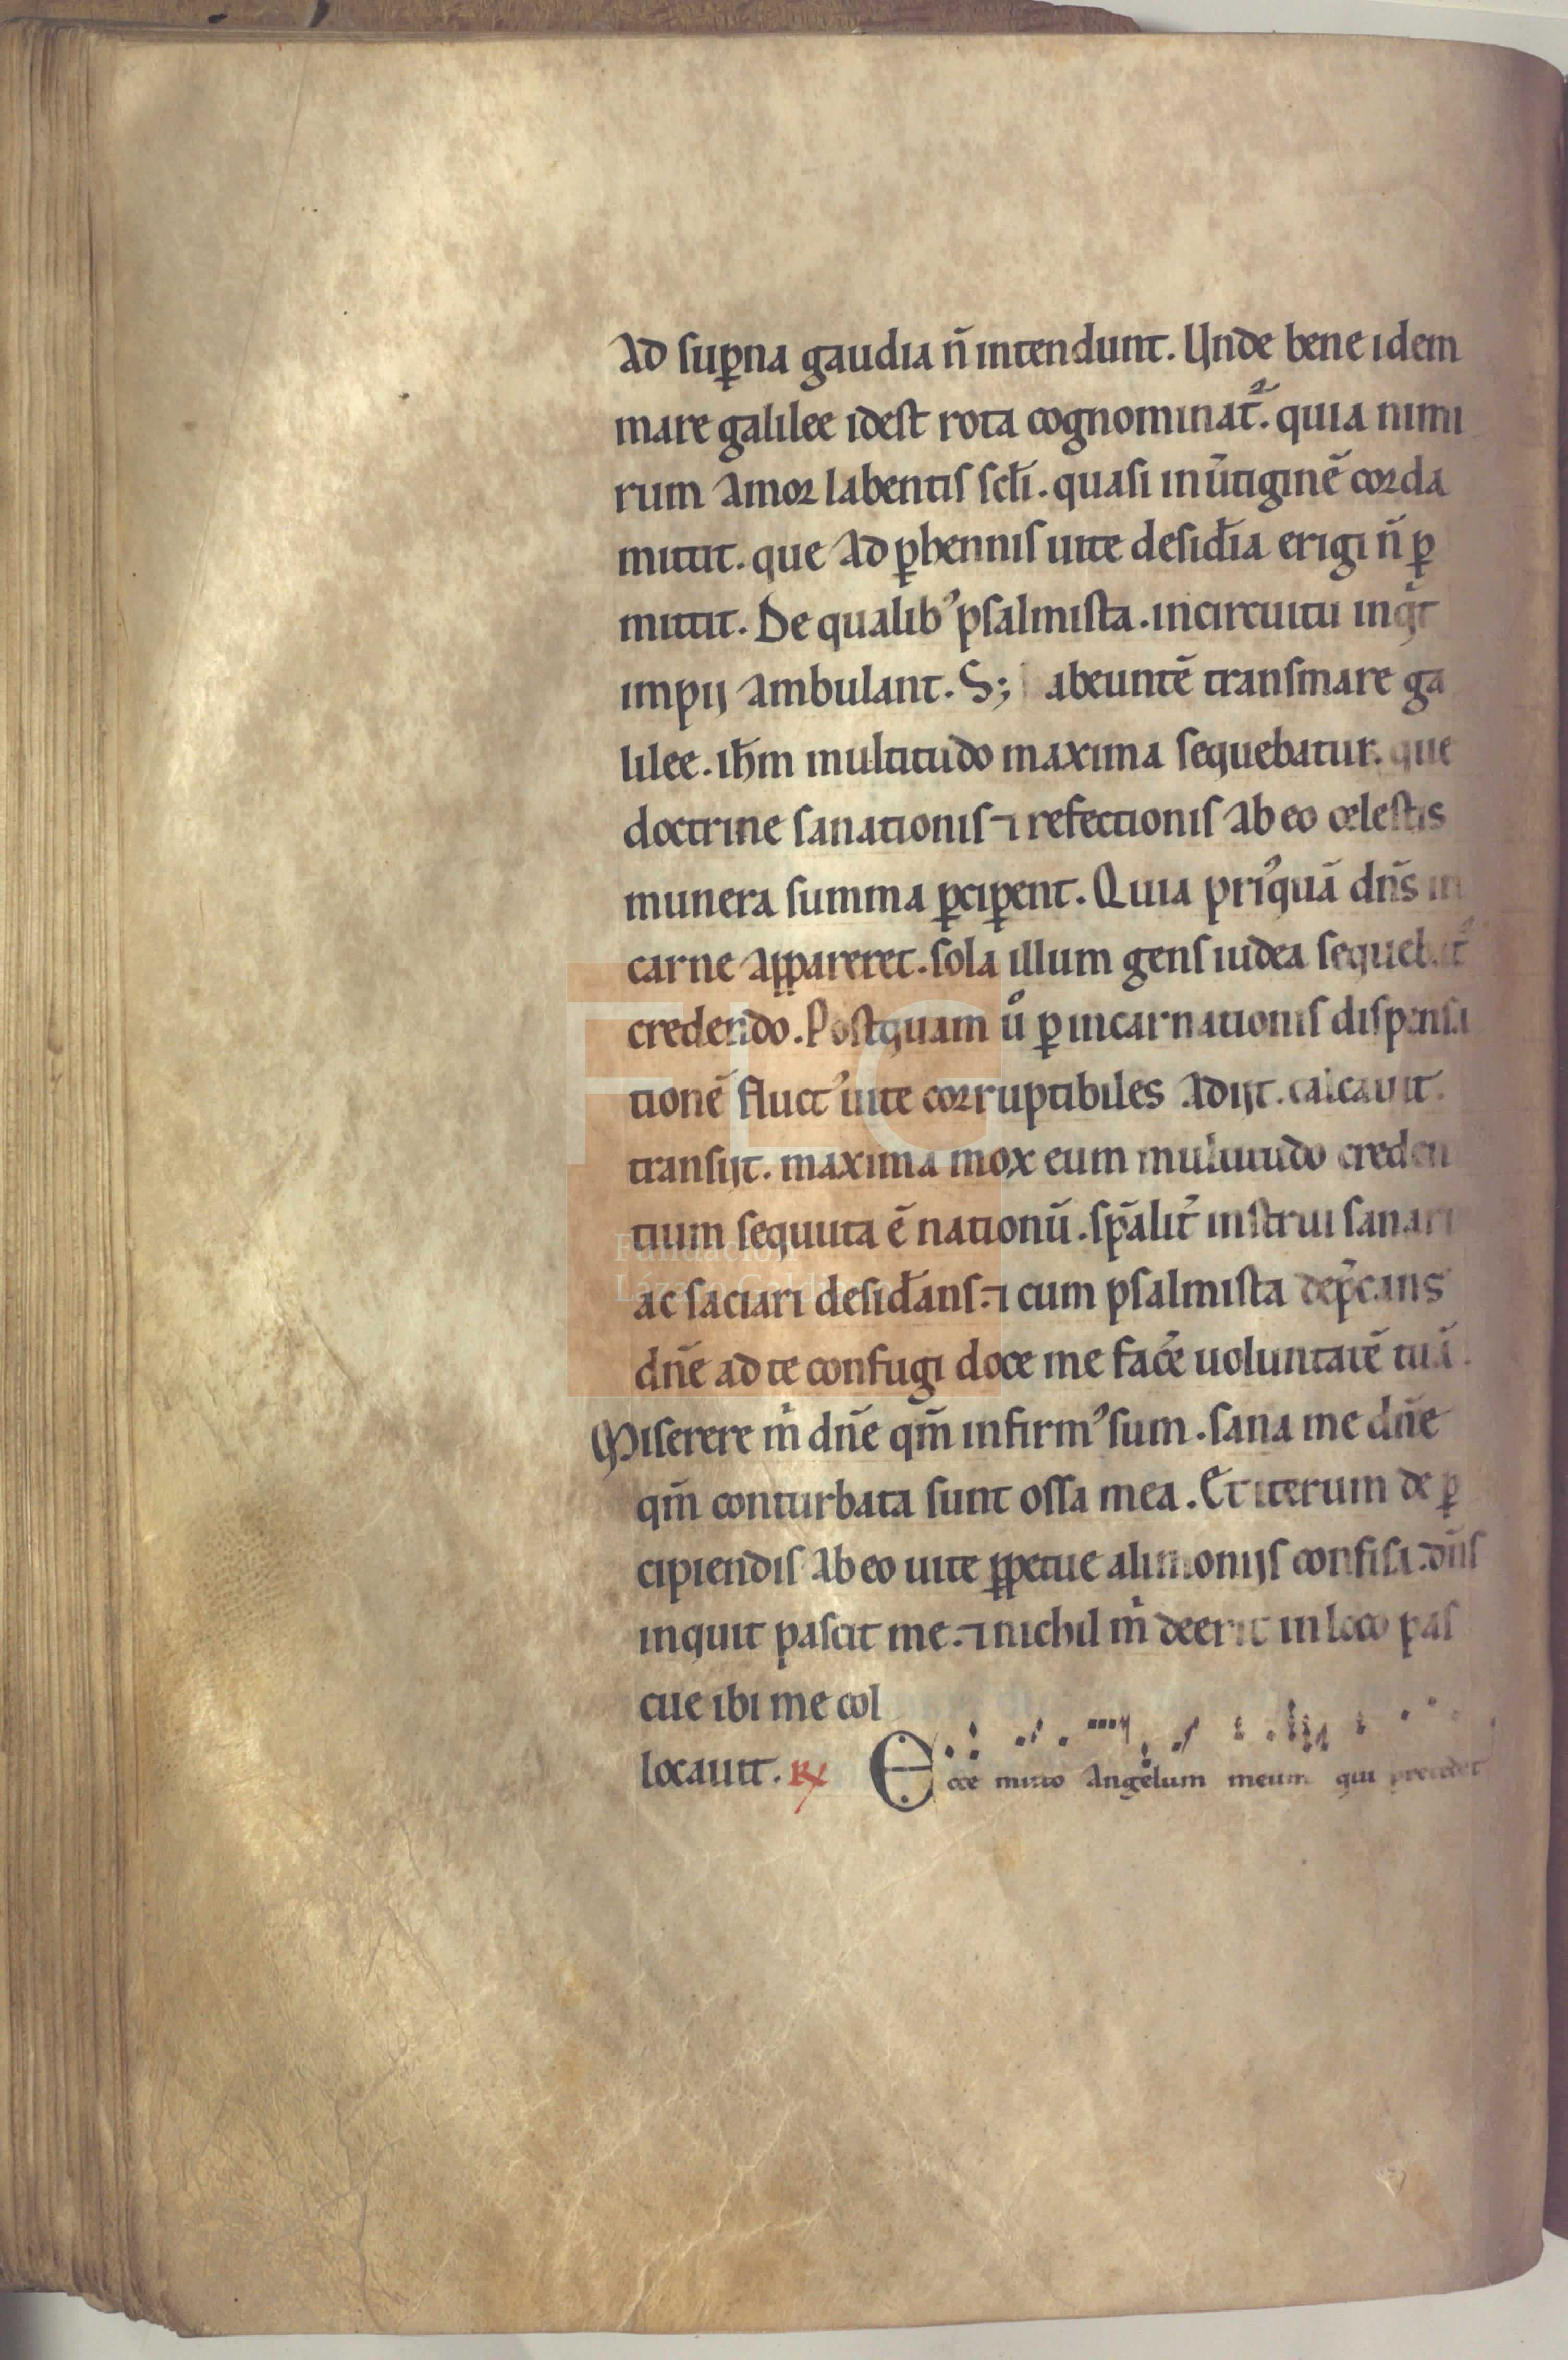 Ad sup̱na gaudia n̄ intendunt. Unde bene idem
mare galilee idest rota cognominat᷑. quia nimi
rum amor labentis scłi. quasi in ūtiginē corda
mittit. que ad ꝑhennis uite desiđia erigi n̄ ꝑ
mittit. De qualibꝰ psalmista. incircuitu inqͥt
impij ambulant. S; abeuntē transmare ga
lilee. ih̄m multitudo maxima sequebatur. que
doctrine sanationis ⁊ refectionis ab eo celestis
munera summa ꝑciꝑent. Quia priꝰquā dn̄s in
carne appareret. sola illum gens iudea sequebat᷑
credendo. Postquam uͦ ꝑ incarnationis dispensa
tionē fluctꝰ uite corruptibiles adijt. calcauit.
transijt. maxima mox eum multitudo creden
tium sequuta ē nationū. sp̄alit᷑ instrui sanari
ac saciari desiđans. ⁊ cum psalmista dep̄cans
dn̄e ad te confugi doce me fac̄e uoluntatē tuā.
Miserere mͥ dn̄e qm̄ infirmꝰ sum. sana me dn̄e
qm̄ conturbata sunt ossa mea. Et iterum de ꝑ
cipiendis ab eo uite ꝑpetue alimonijs confisa. dn̄s
inquit pascit me. ⁊ nichil mͥ deerit in loco pas
cue ibi me col
locauit. ℟ Ecce mitto angelum meum qui precedet
FLG
Fundación
Lázaro Galdiano